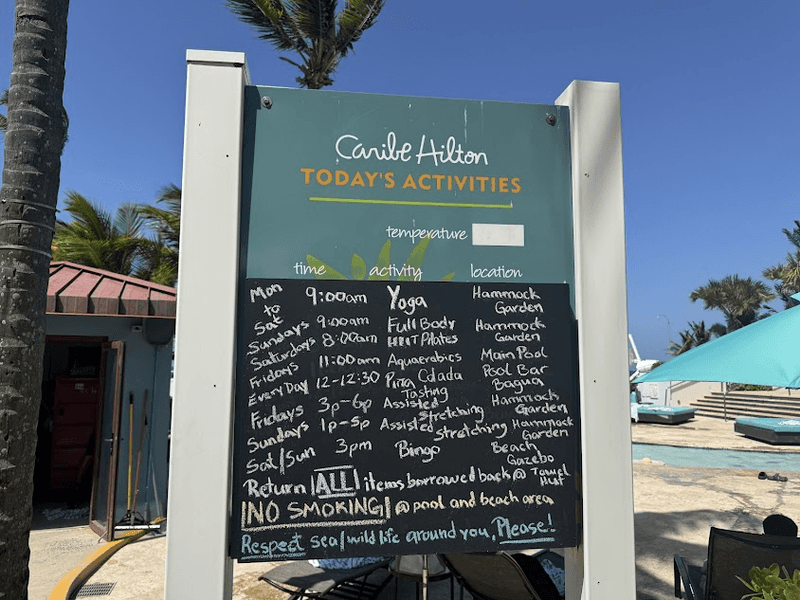 Caribe Hilton
TODAY'S ACTIVITIES
temperature
time activity location
Mon to Sat 9:00am Yoga Hammock Garden
Sundays 9:00am Full Body Hammock
Saturdays 8:00am HIIT Pilates Garden
Fridays 11:00am Aquaerobics Main Pool
Every Day 12-12:30 Piña Colada Tasting Pool Bar Bagua
Fridays 3p-6p Assisted Stretching Hammocks Garden
Sundays 1p-5p Assisted Stretching Hammock Garden
Sat/Sun 3pm Bingo Beach Gazebo
Return |ALL| items borrowed back @ Towel Hut
|NO SMOKING| @ pool and beach area
Respect sea/wild life around you, Please!